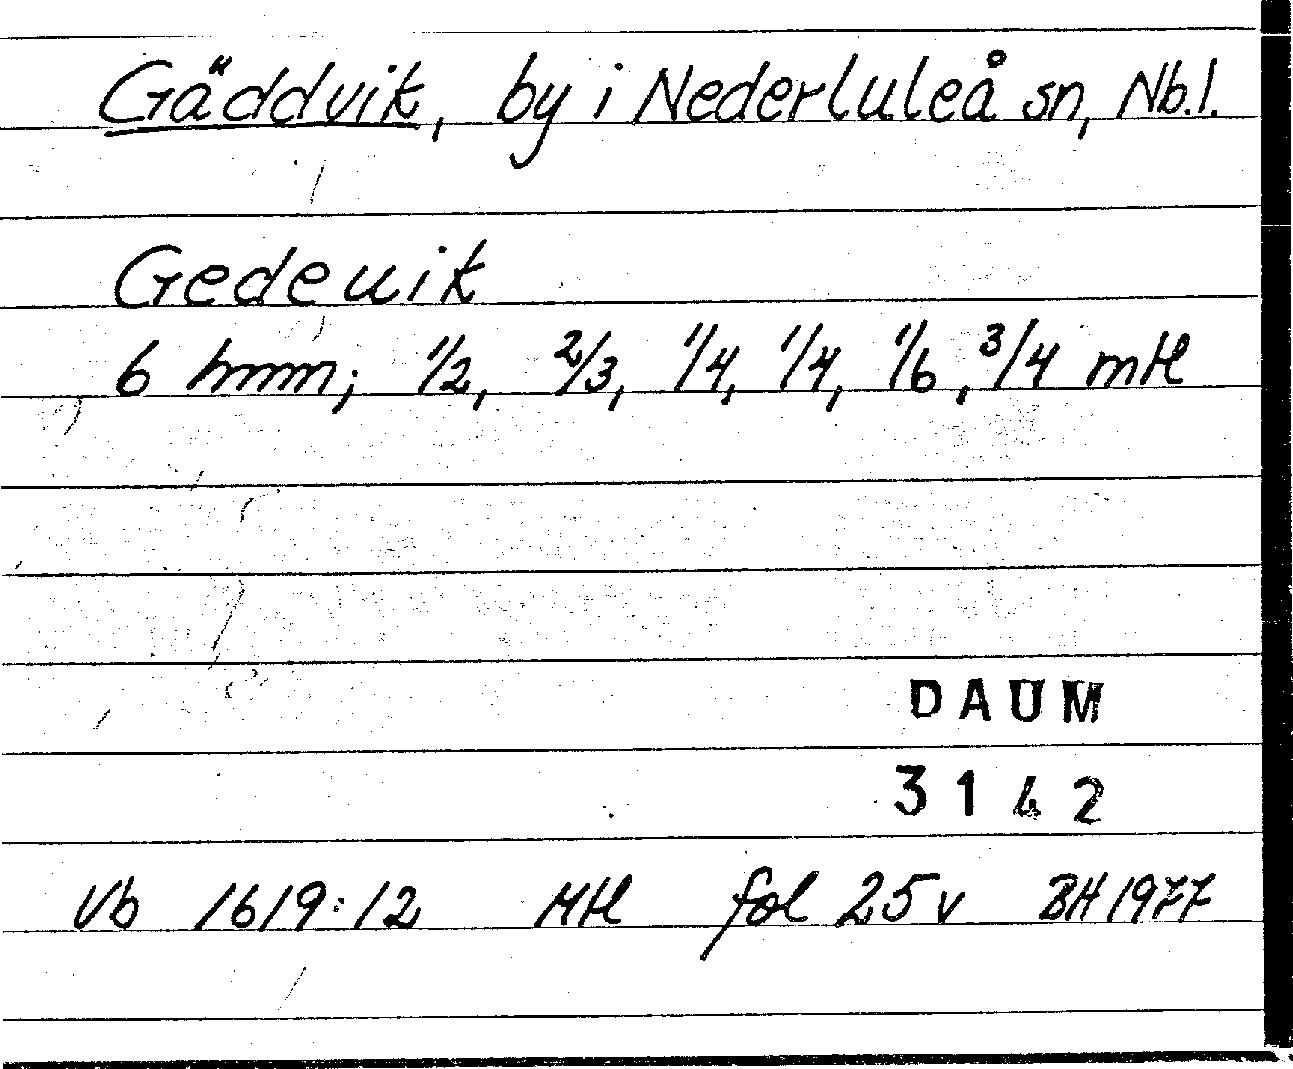 Gäddvik, by i Nederluleå sn, Nb.l.
Gedeuik
6 hmm; 1/2, 2/3, 1/4, 1/4, 1/6, 3/4 mtl
DAUM
3142
Vb 1619:12 Mtl fol 25v BH 1977